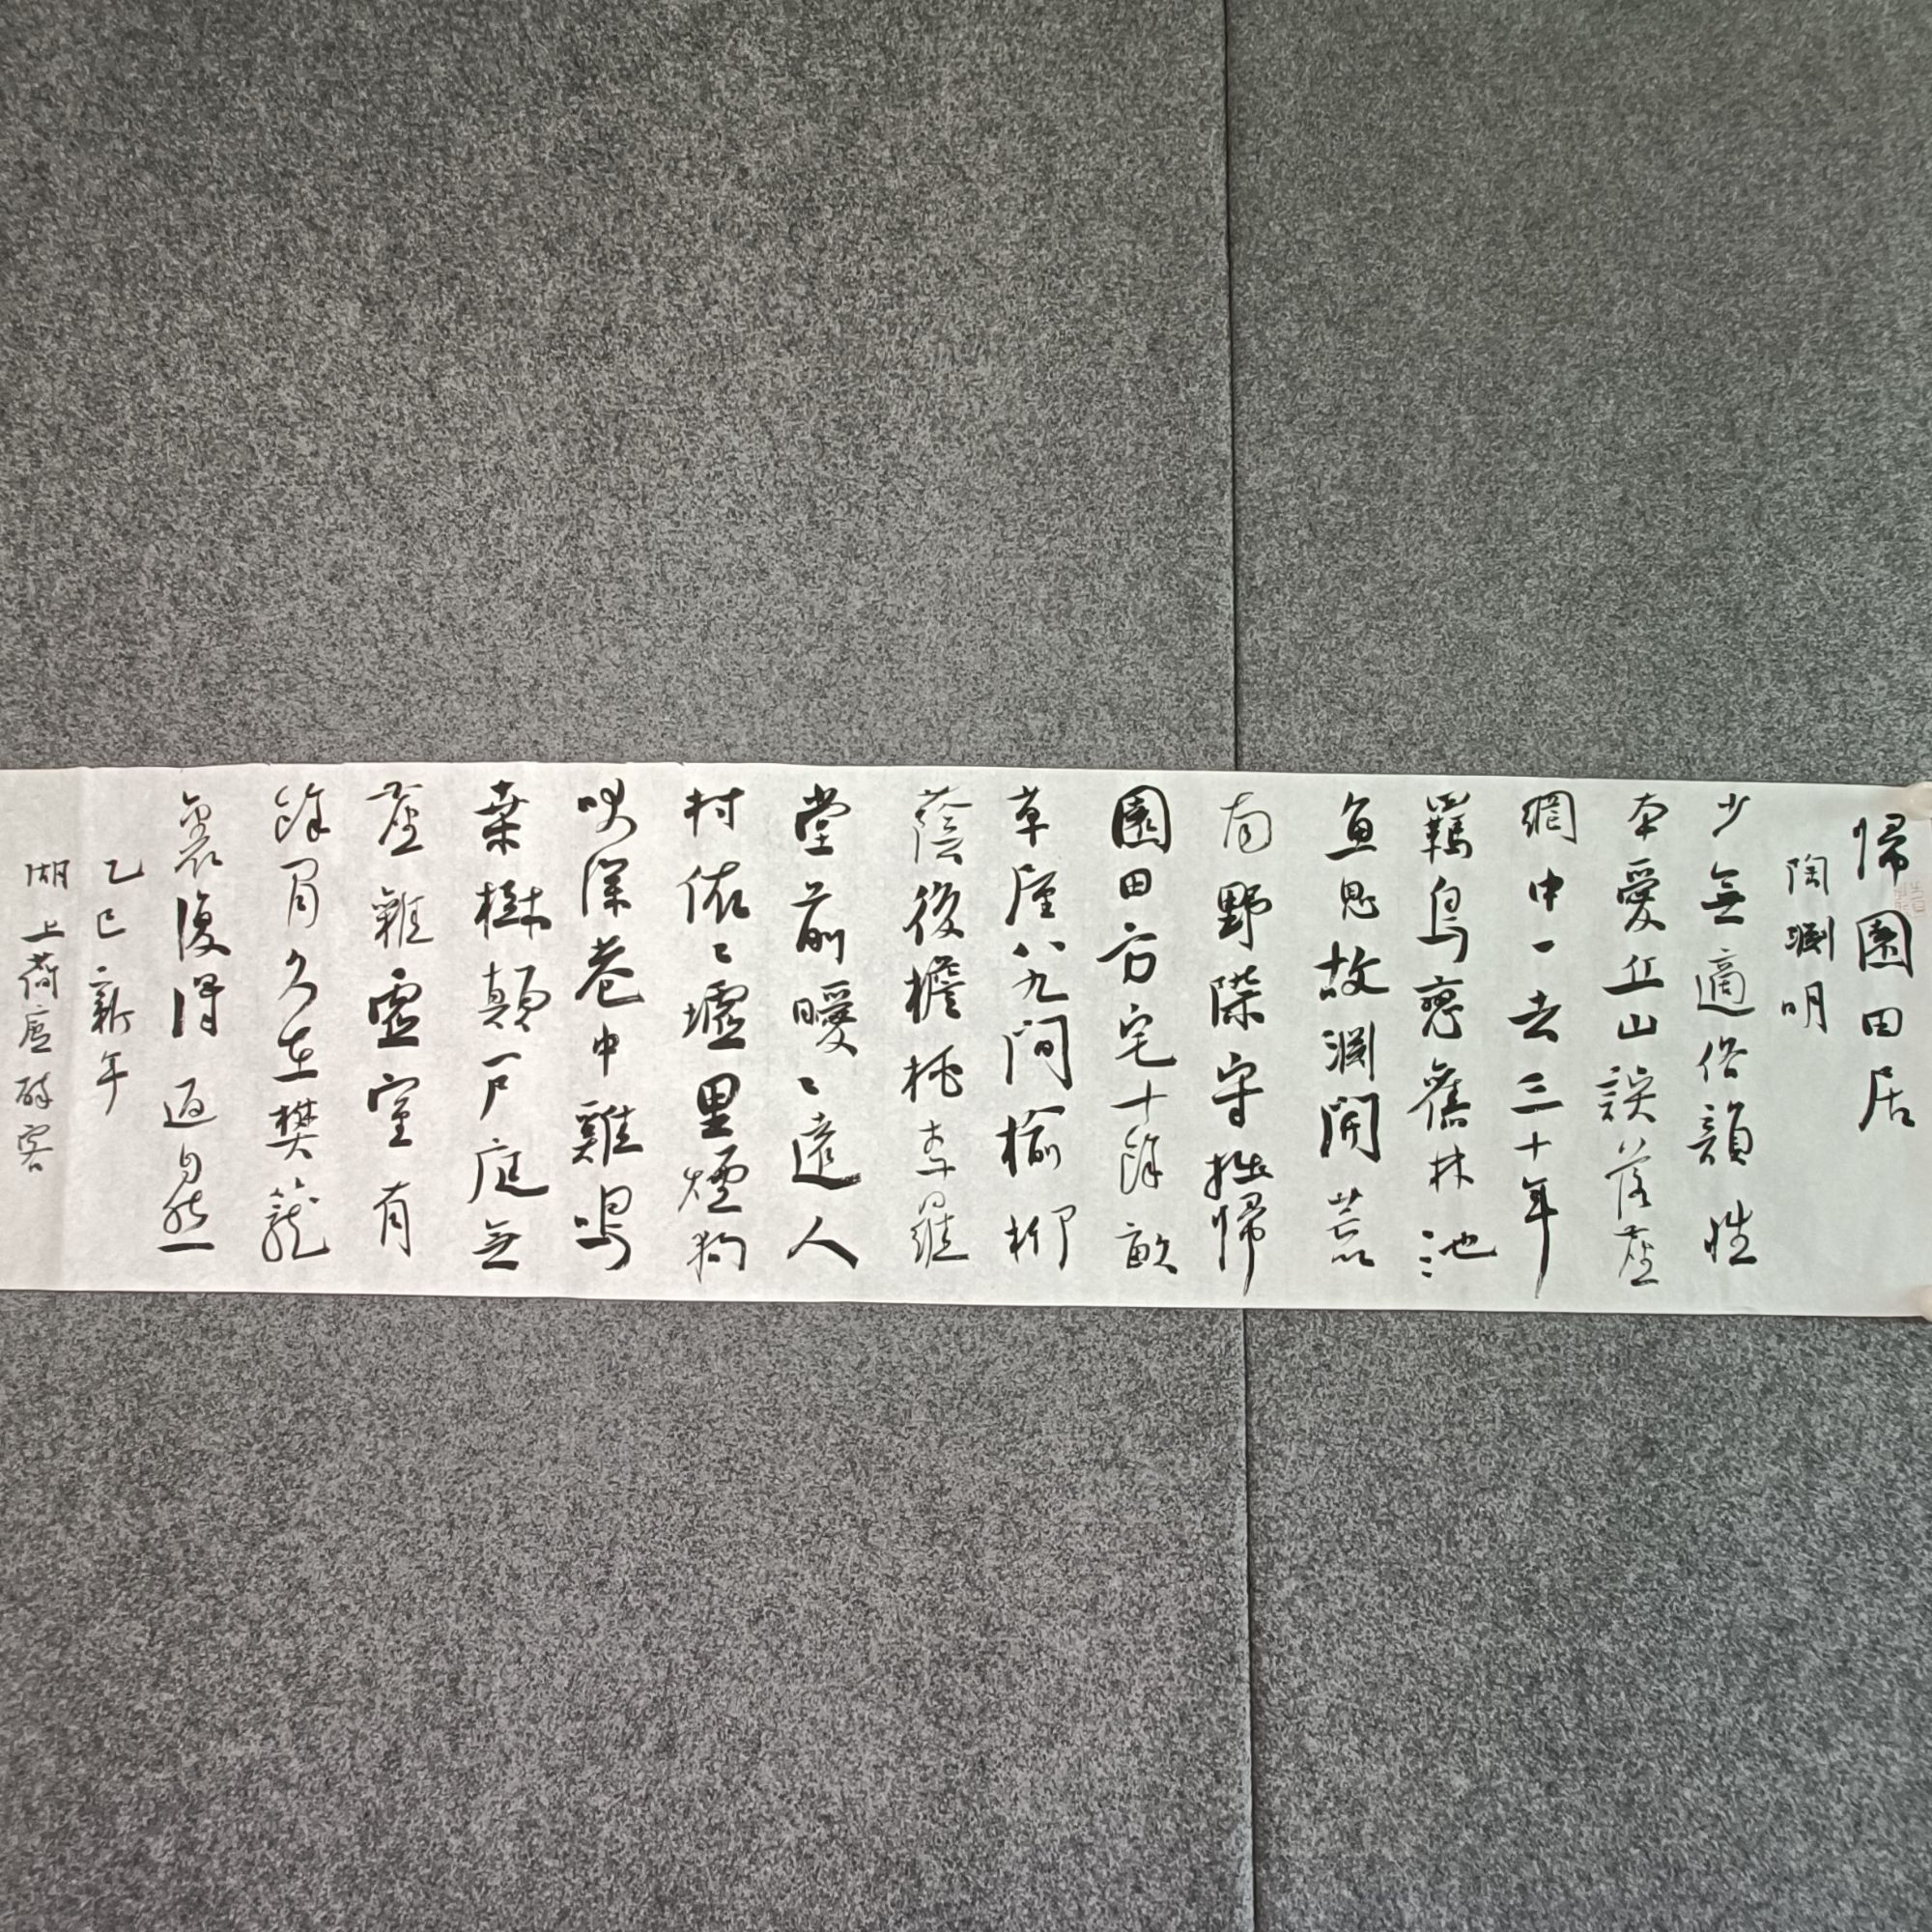 歸園田居
陶淵明
少無適俗韻性
本愛丘山誤落塵
網中一去三十年
羈鳥戀舊林池
魚思故淵開荒
南野際守拙歸
園田方宅十餘畝
草屋八九間榆柳
蔭後檐桃李羅
堂前曖〻遠人
村依〻墟里煙狗
吠深巷中雞鳴
桑樹顛戶庭無
塵雜虛室有
餘閒久在樊籠
裏復得返自然
乙巳新年
湖上荷廬醉客